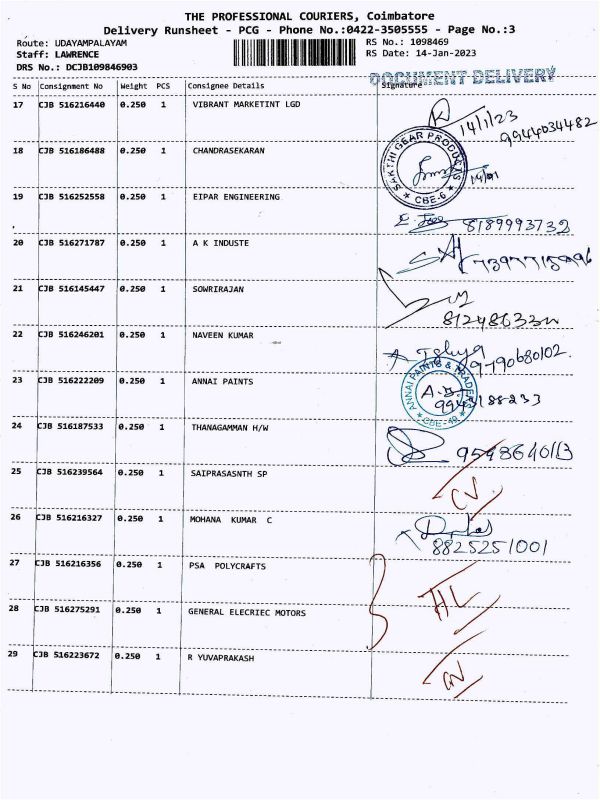 THE PROFESSIONAL COURIERS, Coimbatore
Delivery Runsheet - PCG - Phone No.:0422-3505555 - Page No.:3
Route: UDAYAMPALAYAM RS No.: 1098469
Staff: LAWRENCE RS Date: 14-Jan-2023
DRS No.: DCJB109846903
DOCUMENT DELIVERY
S No Consignment No Weight PCS Consignee Details Signature
17 CJB 516216440 0.250 1 VIBRANT MARKETINT LGD
14/1/23
9944034482
18 CJB 516186488 0.250 1 CHANDRASEKARAN
SAKTHI GEAR PRODUCTS
CBE-6
19 CJB 516252558 0.250 1 EIPAR ENGINEERING
8189993732
20 CJB 516271787 0.250 1 A K INDUSTE
21 CJB 516145447 0.250 1 SOWRIRAJAN
22 CJB 516246201 0.250 1 NAVEEN KUMAR
9790680102.
23 CJB 516222209 0.250 1 ANNAI PAINTS
ANNAI PAINTS & TRADERS
CBE-49
24 CJB 516187533 0.250 1 THANAGAMMAN H/W
25 CJB 516239564 0.250 1 SAIPRASASNTH SP
26 CJB 516216327 0.250 1 MOHANA KUMAR C
8825251001
27 CJB 516216356 0.250 1 PSA POLYCRAFTS
28 CJB 516275291 0.250 1 GENERAL ELECRIEC MOTORS
HL
29 CJB 516223672 0.250 1 R YUVAPRAKASH